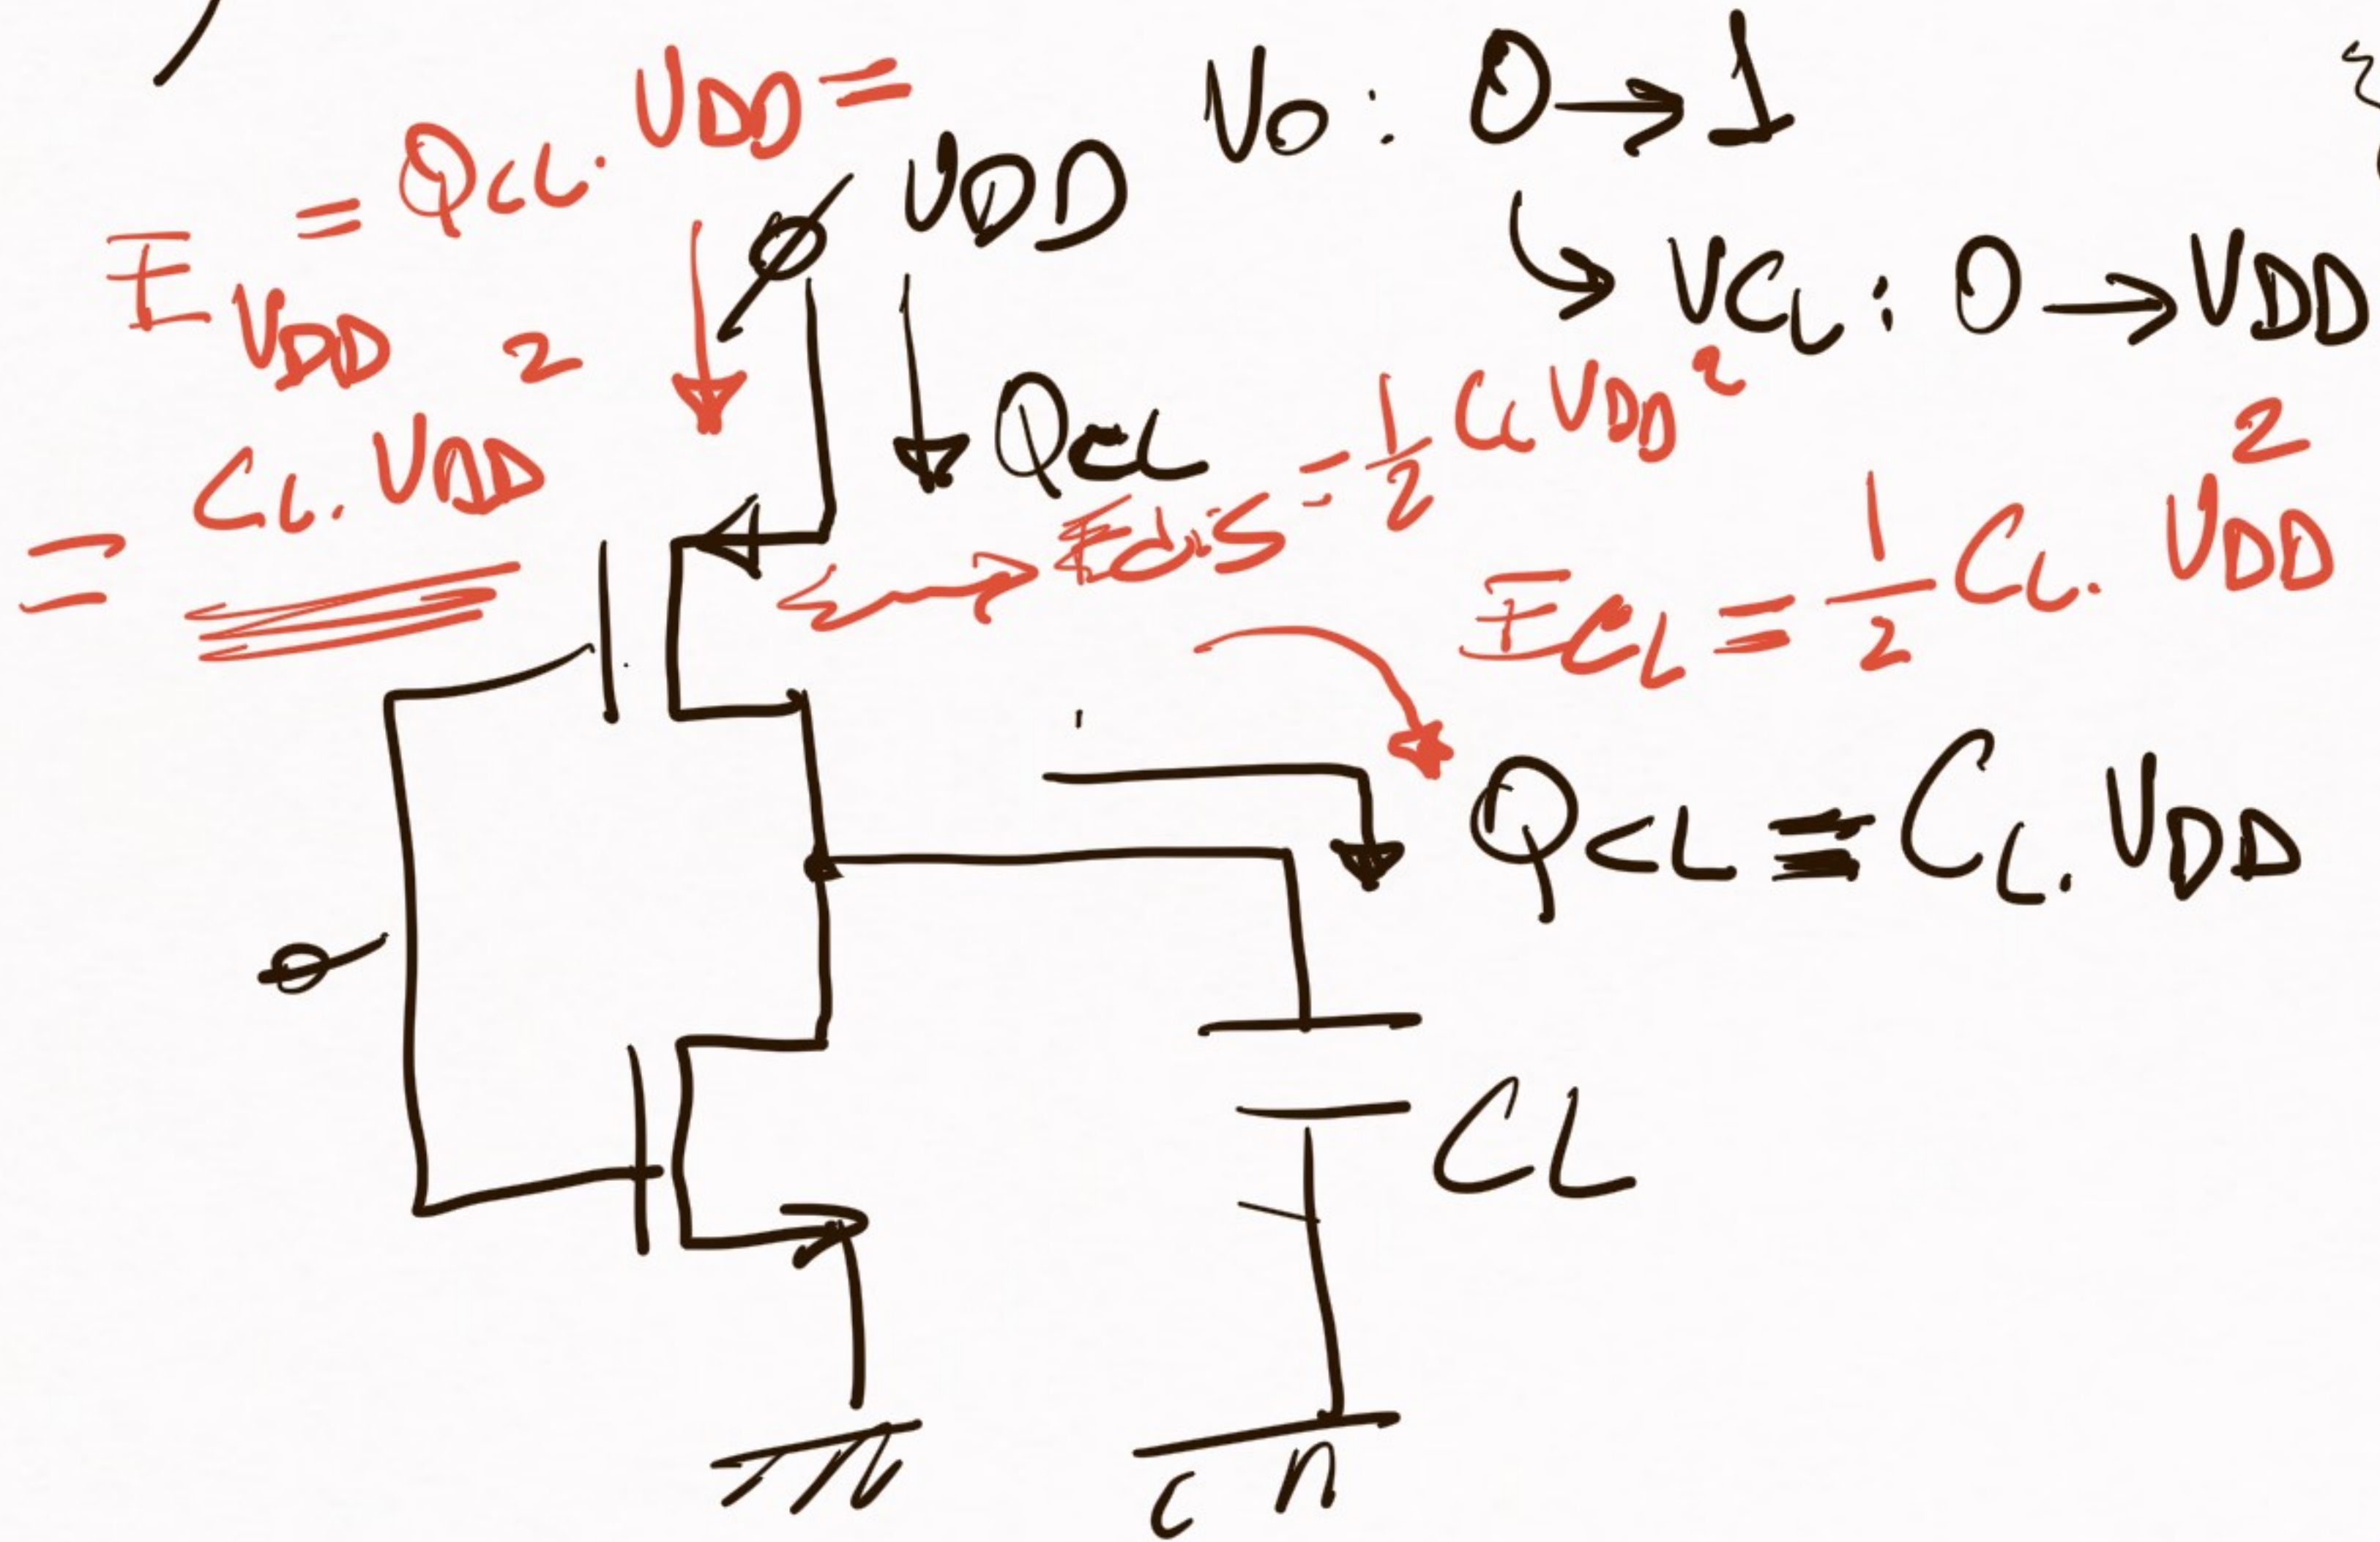 = QCL. VDD =
E VDD
= CL. VDD²
VDD
VO: 0 → 1
VCL: 0 → VDD
QCL
Edis = 1/2 CL VDD²
ECL = 1/2 CL. VDD²
QCL = CL. VDD
CL